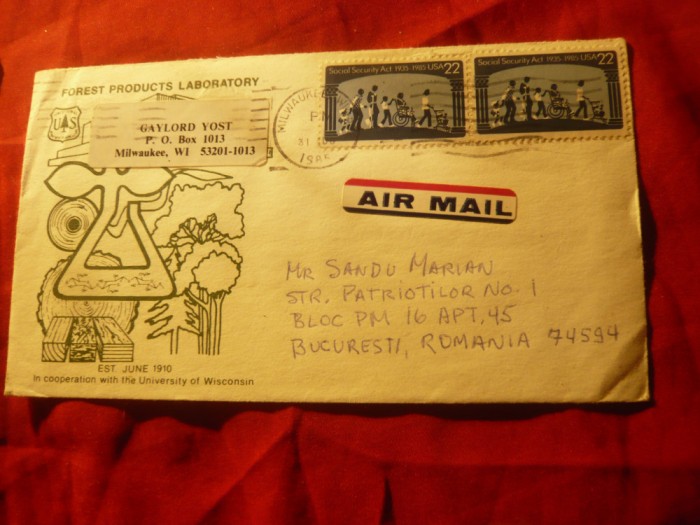 FOREST PRODUCTS LABORATORY
U S
GAYLORD YOST
P. O. Box 1013
Milwaukee, WI 53201-1013
Social Security Act 1935-1985 USA 22
Social Security Act 1935-1985 USA 22
MILWAUKEE
PM
31
1985
AIR MAIL
MR SANDU MARIAN
STR. PATRIOTILOR NO. 1
BLOC PM 16 APT. 45
BUCURESTI, ROMANIA 74594
EST. JUNE 1910
In cooperation with the University of Wisconsin